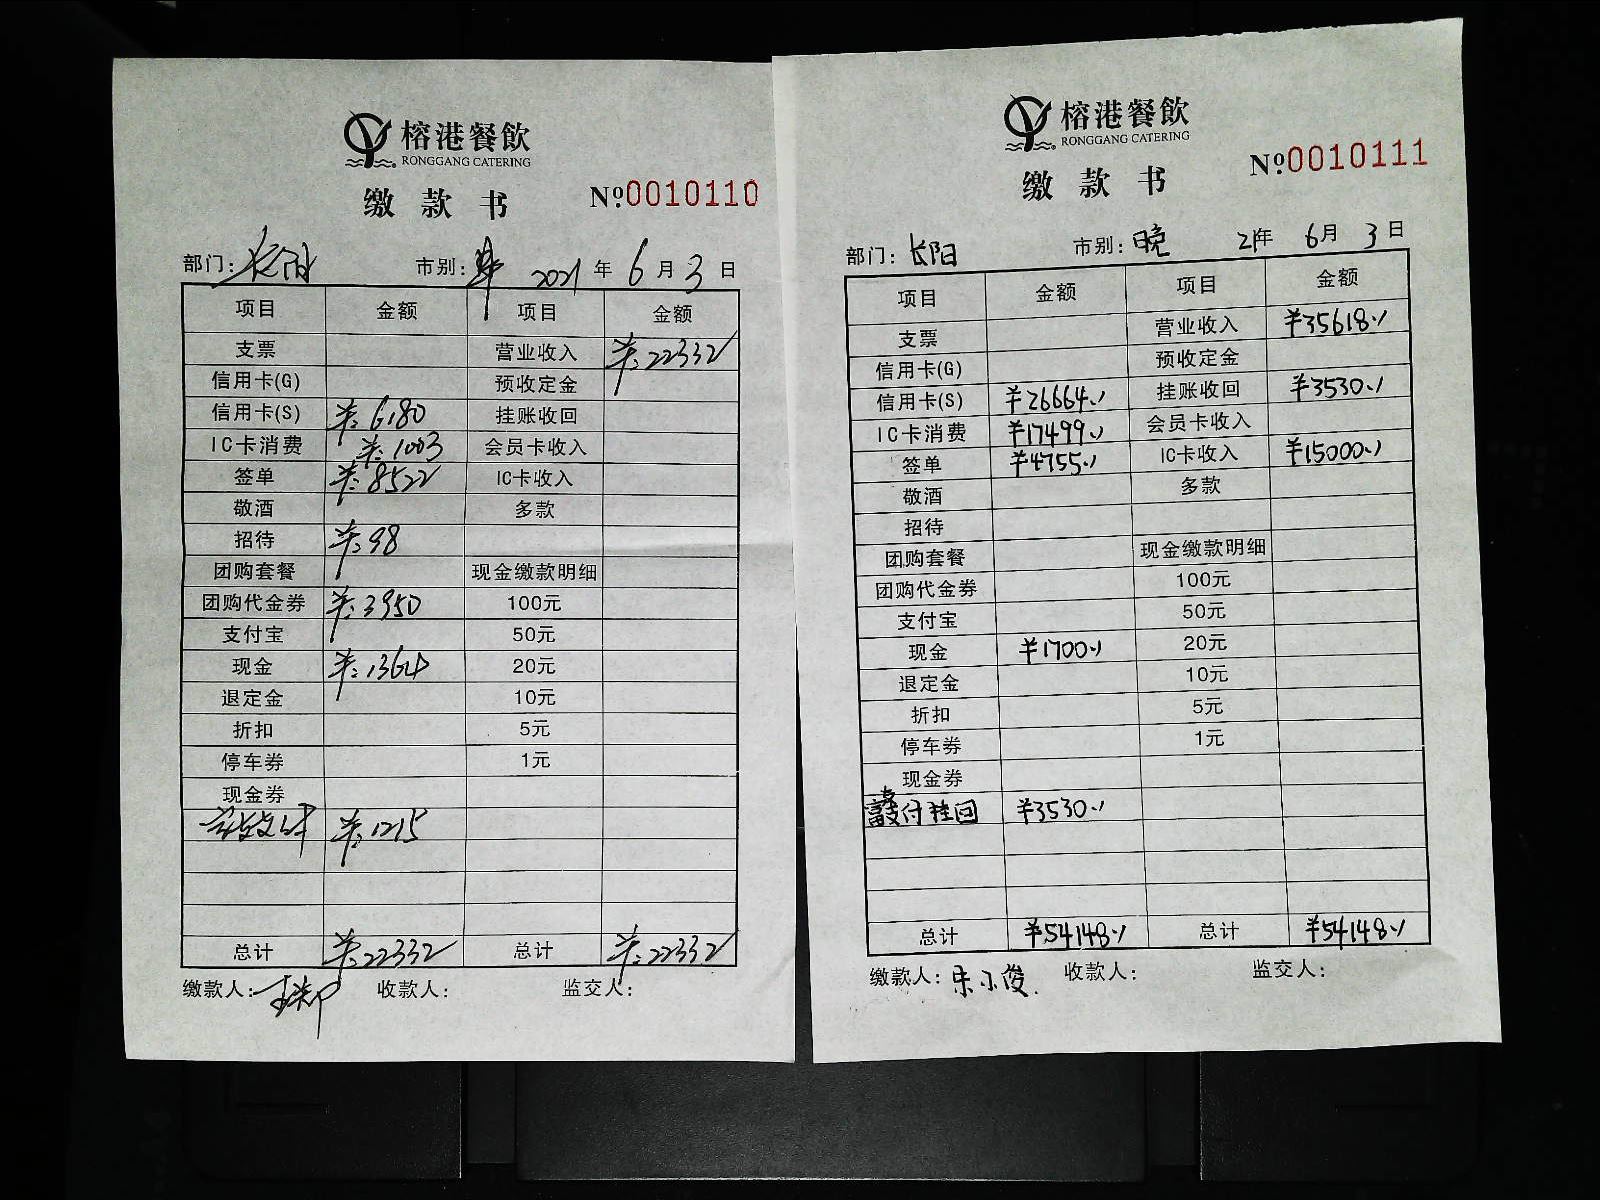 榕港餐飲
RONGGANG CATERING
缴款书 №0010110
部门：长阳 市别： 2021年6月3日
项目 金额 项目 金额
支票 营业收入 ¥:22332
信用卡(G) 预收定金
信用卡(S) ¥:6180 挂账收回
IC卡消费 ¥:1003 会员卡收入
签单 ¥:8522 IC卡收入
敬酒 多款
招待 ¥:98
团购套餐 现金缴款明细
团购代金券 ¥:3950 100元
支付宝 50元
现金 ¥:1364 20元
退定金 10元
折扣 5元
停车券 1元
现金券
¥:1215
总计 ¥:22332 总计 ¥:22332
缴款人： 收款人： 监交人：
榕港餐飲
RONGGANG CATERING
缴款书 №0010111
部门：长阳 市别：晚 21年6月3日
项目 金额 项目 金额
支票 营业收入 ¥35618.
信用卡(G) 预收定金
信用卡(S) ¥26664. 挂账收回 ¥3530.
IC卡消费 ¥17499. 会员卡收入
签单 ¥4755. IC卡收入 ¥15000.
敬酒 多款
招待
团购套餐 现金缴款明细
团购代金券 100元
支付宝 50元
现金 ¥1700. 20元
退定金 10元
折扣 5元
停车券 1元
现金券
付挂回 ¥3530.
总计 ¥54148. 总计 ¥54148.
缴款人：朱小俊. 收款人： 监交人：